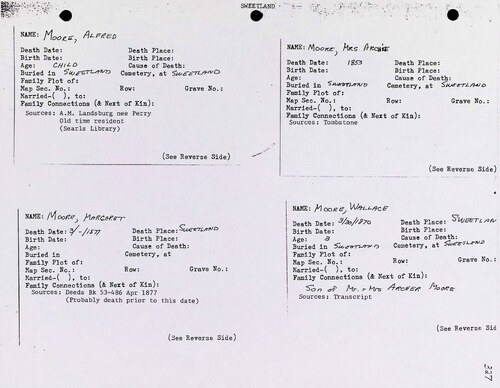 SWEETLAND
NAME: MOORE, ALFRED
Death Date: Death Place:
Birth Date: Birth Place:
Age: CHILD Cause of Death:
Buried in SWEETLAND Cemetery, at SWEETLAND
Family Plot of:
Map Sec. No.: Row: Grave No.:
Married-( ), to:
Family Connections (& Next of Kin):
Sources: A.M. Landsburg nee Perry
Old time resident
(Searls Library)
(See Reverse Side)
NAME: MOORE, MRS ARCHIE
Death Date: 1853 Death Place:
Birth Date: Birth Place:
Age: Cause of Death:
Buried in SWEETLAND Cemetery, at SWEETLAND
Family Plot of:
Map Sec. No.: Row: Grave No.:
Married-( ), to:
Family Connections (& Next of Kin):
Sources: Tombstone
(See Reverse Side)
NAME: MOORE, MARGARET
Death Date: 3/-/1877 Death Place: SWEETLAND
Birth Date: Birth Place:
Age: Cause of Death:
Buried in Cemetery, at
Family Plot of:
Map Sec. No.: Row: Grave No.:
Married-( ), to:
Family Connections (& Next of Kin):
Sources: Deeds Bk 53-486 Apr 1877
(Probably death prior to this date)
(See Reverse Side)
NAME: MOORE, WALLACE
Death Date: 3/30/1870 Death Place: SWEETLAN
Birth Date: Birth Place:
Age: 8 Cause of Death:
Buried in SWEETLAND Cemetery, at SWEETLAND
Family Plot of:
Map Sec. No.: Row: Grave No.:
Married-( ), to:
Family Connections (& Next of Kin):
SON OF MR. + MRS ARCHER MOORE
Sources: Transcript
(See Reverse Sid